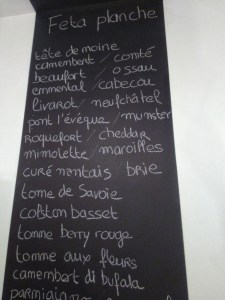 Feta planche
tête de moine
camembert / comté
beaufort / ossau
emmental / cabecou
livarot / neufchâtel
pont l'évêque / munster
roquefort / cheddar
mimolette / maroilles
curé nantais / brie
tome de Savoie
colston basset
tomme berry rouge
tomme aux fleurs
camembert di bufala